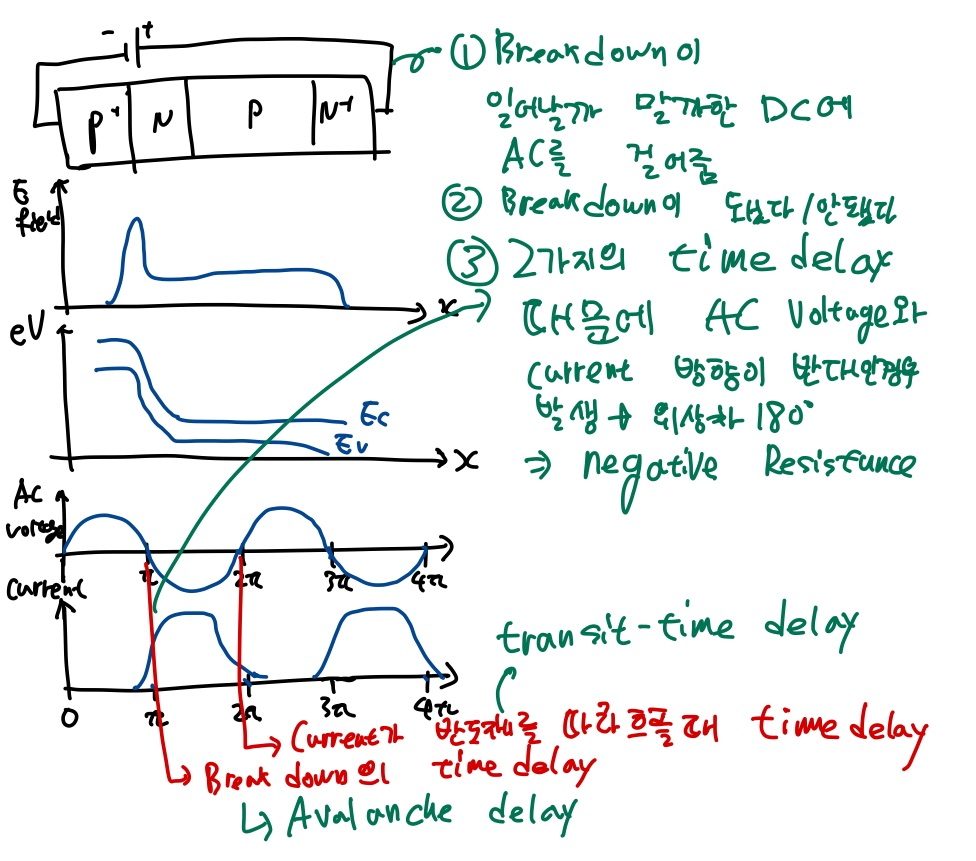 - +
① Breakdown이
P+ N P N+
일어날까 말까한 DC에
AC를 걸어줌
E
field
② Breakdown이 됐다/안됐다
③ 2가지의 time delay
x
때문에 AC Voltage와
eV
Current 방향이 반대인경우
발생 → 위상차 180°
Ec
Ev
x
⇒ negative Resistance
AC
voltage
π 2π 3π 4π
Current
transit-time delay
0 π 2π 3π 4π
Current가 반도체를 따라흐를때 time delay
Break down의 time delay
Avalanche delay